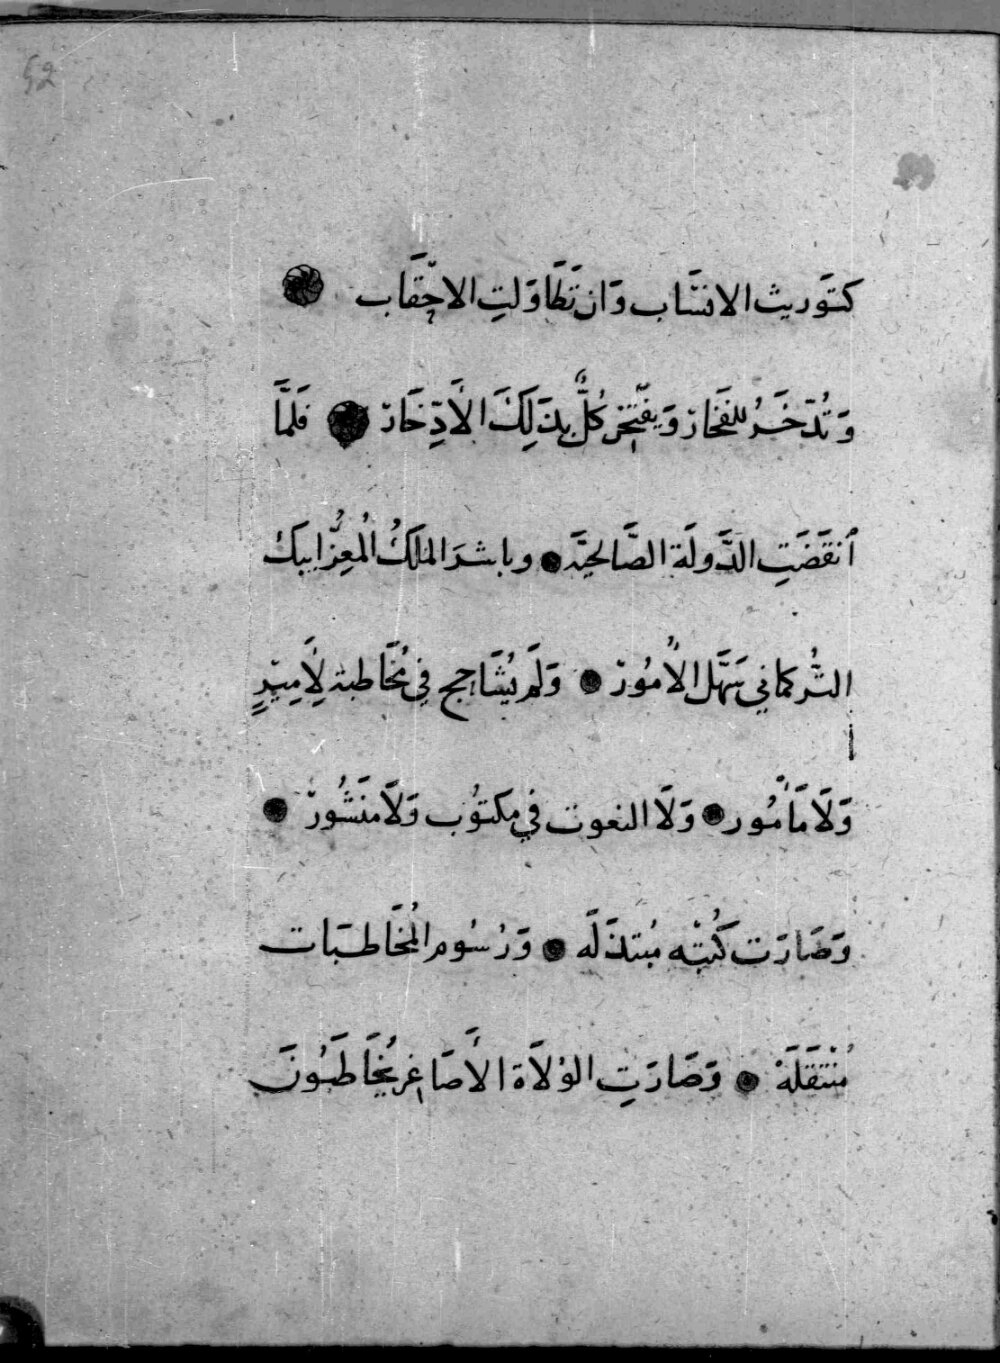 52
كتَوريث الانسَاب وَان تَطَاوَلتِ الاحْقَاب
وَتُدّخَرُ للفَخارْ وَيفْتخرُ كُلٌّ بذَلِكَ الأَدِّخَارْ فَلمَّا
ٱنقَضَتِ الدَّولَة الصَّالحيَّة وباشرَ الملَكُ المُعِزُّ ايبَك
التُركماني سَهَّل الأُمُورْ وَلَم يُشَاحِح في مُخَاطبة لأَمِيْرٍ
وَلَا مَأْمُور وَلَا النعوت في مكتوُب وَلَا مَنشُورْ
وَصَارَت كُتبُه مُبتذَلَه وَرُسُوم المُخَاطبَات
مُنْتَقَلَهْ وَصَارَتِ الوُلَاة الأَصَاغر يُخَاطَبُونَ